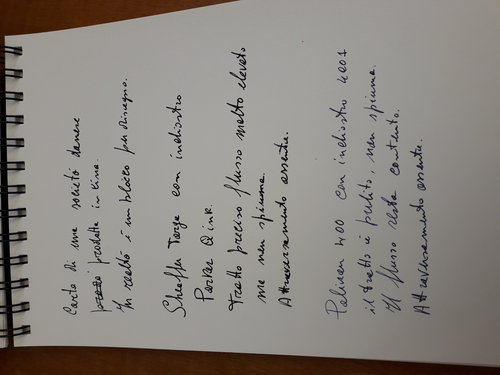 Carta di una società danese
prodotta in Cina.
In realtà è un blocco per disegno.
Sheaffer Targa con inchiostro
Parker Qink.
Tratto preciso flusso molto elevato
ma non spiuma.
Attraversamento assente.
Pelican 400 con inchiostro 4001
il tratto è pulito, non spiuma.
Il flusso resta contenuto.
Attraversamento assente.